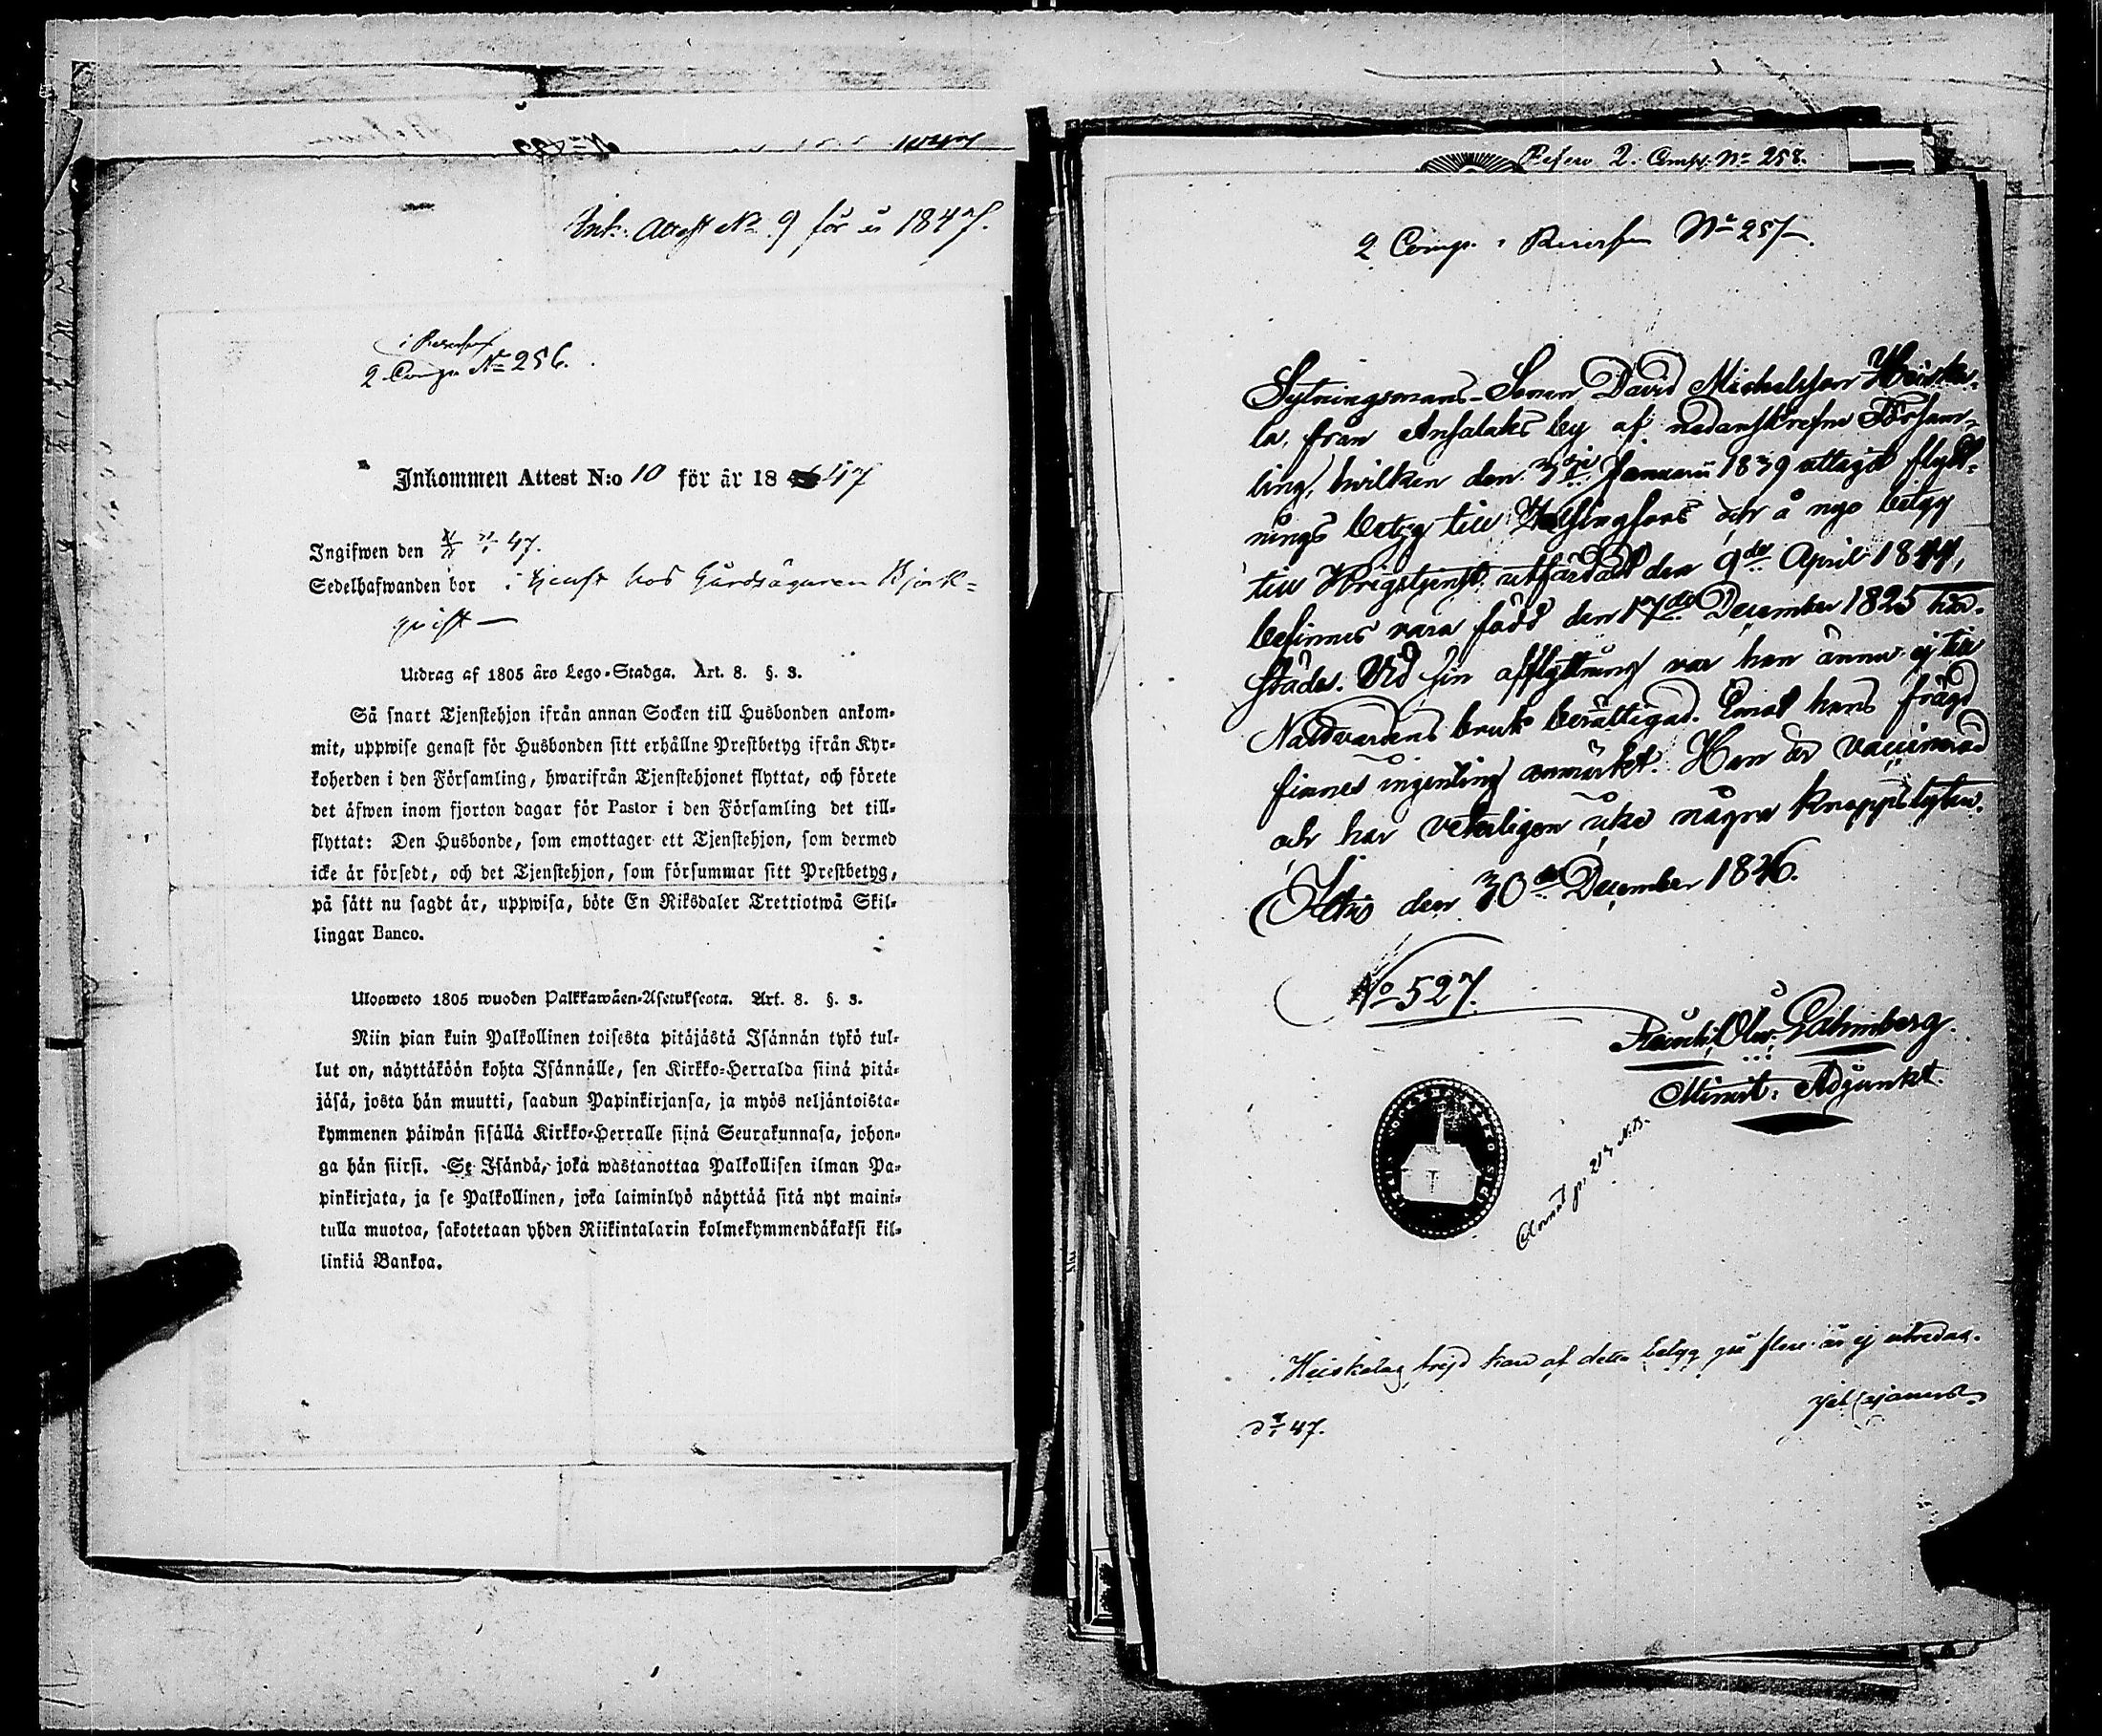 Ink. Attest No 9 för år 1847.
i Reserfen
2 Comp. No 256.
Inkommen Attest N:o 10 för år 18 47
Ingifwen den 47.
Sedelhafwanden bor i tjenst hos Gårdsägaren Björk-
qvist —
Utdrag af 1805 års Lego-Stadga. Art. 8. §. 3.
Så snart Tjenstehjon ifrån annan Socken till Husbonden ankom-
mit, uppwise genast för Husbonden sitt erhållne Prestbetyg ifrån Kyr-
koherden i den Församling, hwarifrån Tjenstehjonet flyttat, och förete
det äfwen inom fjorton dagar för Pastor i den Församling det till-
flyttat: Den Husbonde, som emottager ett Tjenstehjon, som dermed
icke är försedt, och det Tjenstehjon, som försummar sitt Prestbetyg,
på sätt nu sagdt är, uppwisa, böte En Riksdaler Trettiotwå Skil-
lingar Banco.
Ulosweto 1805 wuoden Palkkawäen-Asetuksesta. Art. 8. §. 3.
Niin pian kuin Palkollinen toisesta pitäjästä Isännän tykö tul-
lut on, näyttäköön kohta Isännälle, sen Kirkko-Herralda siinä pitä-
jäsä, josta hän muutti, saadun Papinkirjansa, ja myös neljäntoista-
kymmenen päiwän sisällä Kirkko-Herralle siinä Seurakunnasa, johon-
ga hän siirsi. Se Isändä, joka wastanottaa Palkollisen ilman Pa-
pinkirjata, ja se Palkollinen, joka laiminlyö näyttää sitä nyt maini-
tulla muotoa, sakotetaan yhden Riikintalarin kolmekymmendäkaksi kil-
linkiä Bankoa.
Reserv 2. Comp. No 258.
2 Comp. i Reserfen No 257.
Sytningsmans-Sonen David Michelsson Heiska-
la, från Ansalaks by af nedanskrefne Försam-
ling, hvilken den 3dje Januarii 1839 uttagit flytt-
nings betyg till Helsingfors och å nyo betyg
till Krigstjenst utfärdadt den 9de April 1844,
befinnes vara född den 17de December 1825 här-
städes. Vid sin afflyttning var han ännu ej till
Nattvardens bruk berättigad. Emot hans frägd
finnes ingenting anmärkt. Han är vaccinerad
och har veterligen icke några kroppslyten.
Ithis den 30de December 1846.
No 527.
Reinh. Olw. Palmberg.
Minist. Adjunkt.
Heiskalas frejd kan af detta betyg på flere år ej utredas.
47.